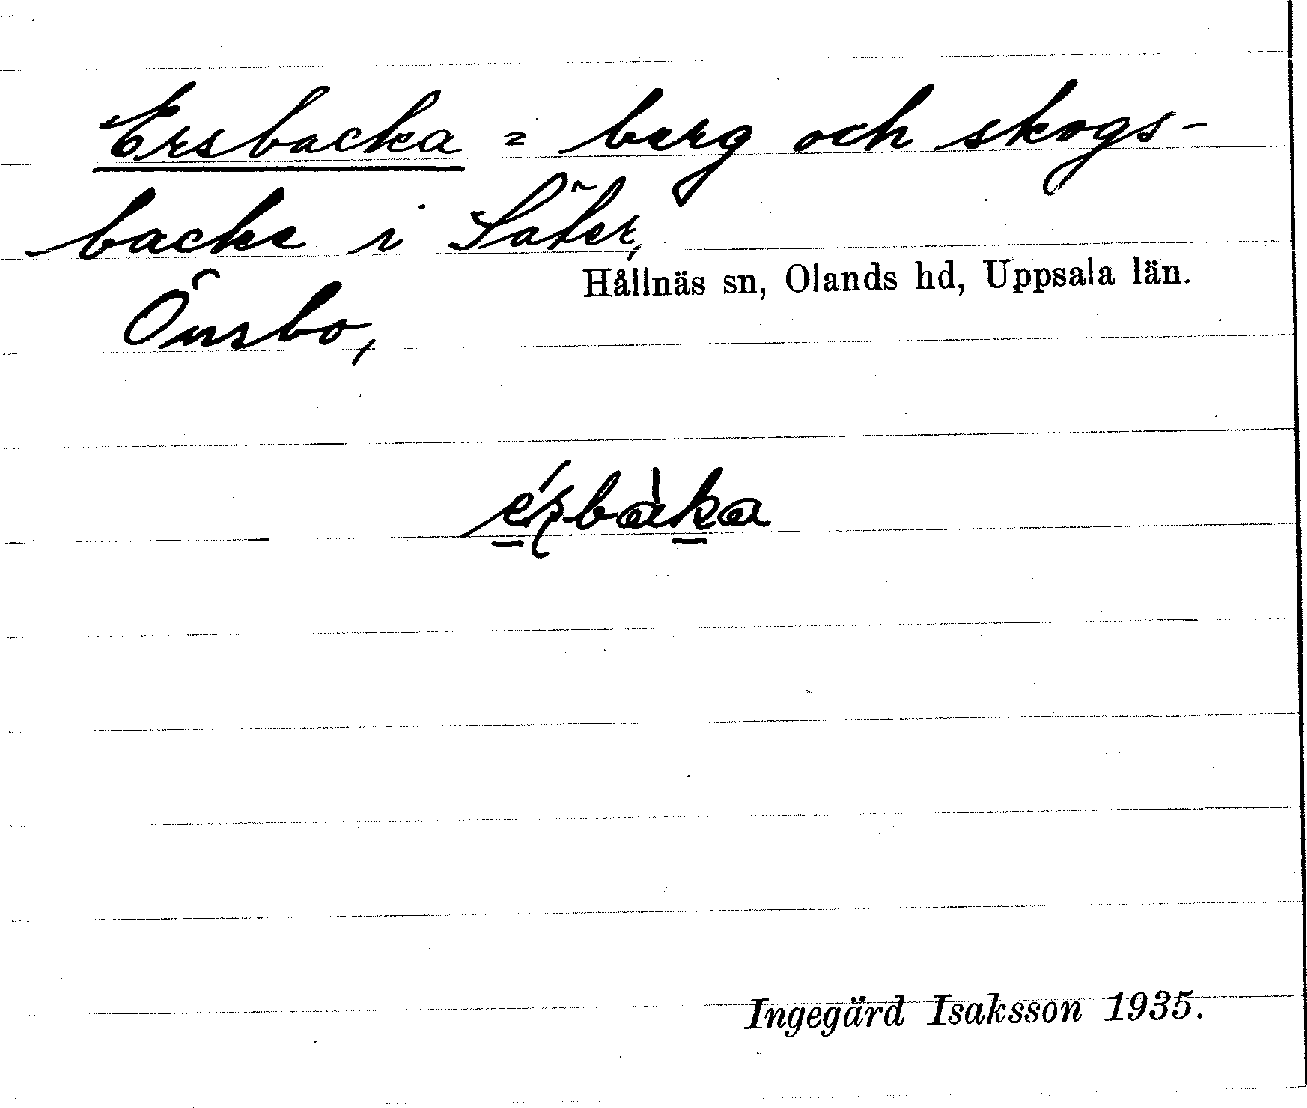 Ersbacka = berg och skogs-
backe i Säter,
Hållnäs sn, Olands hd, Uppsala län.
Önsbo,
Ingegärd Isaksson 1935.